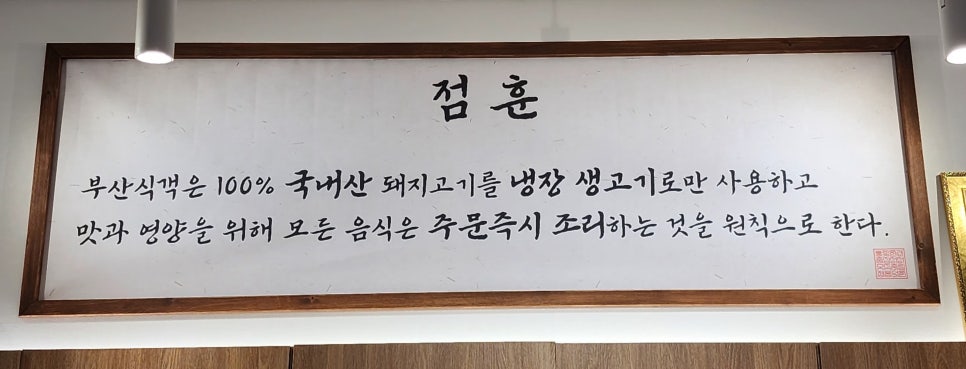 점훈
부산식객은 100% 국내산 돼지고기를 냉장 생고기로만 사용하고
맛과 영양을 위해 모든 음식은 주문즉시 조리하는 것을 원칙으로 한다.